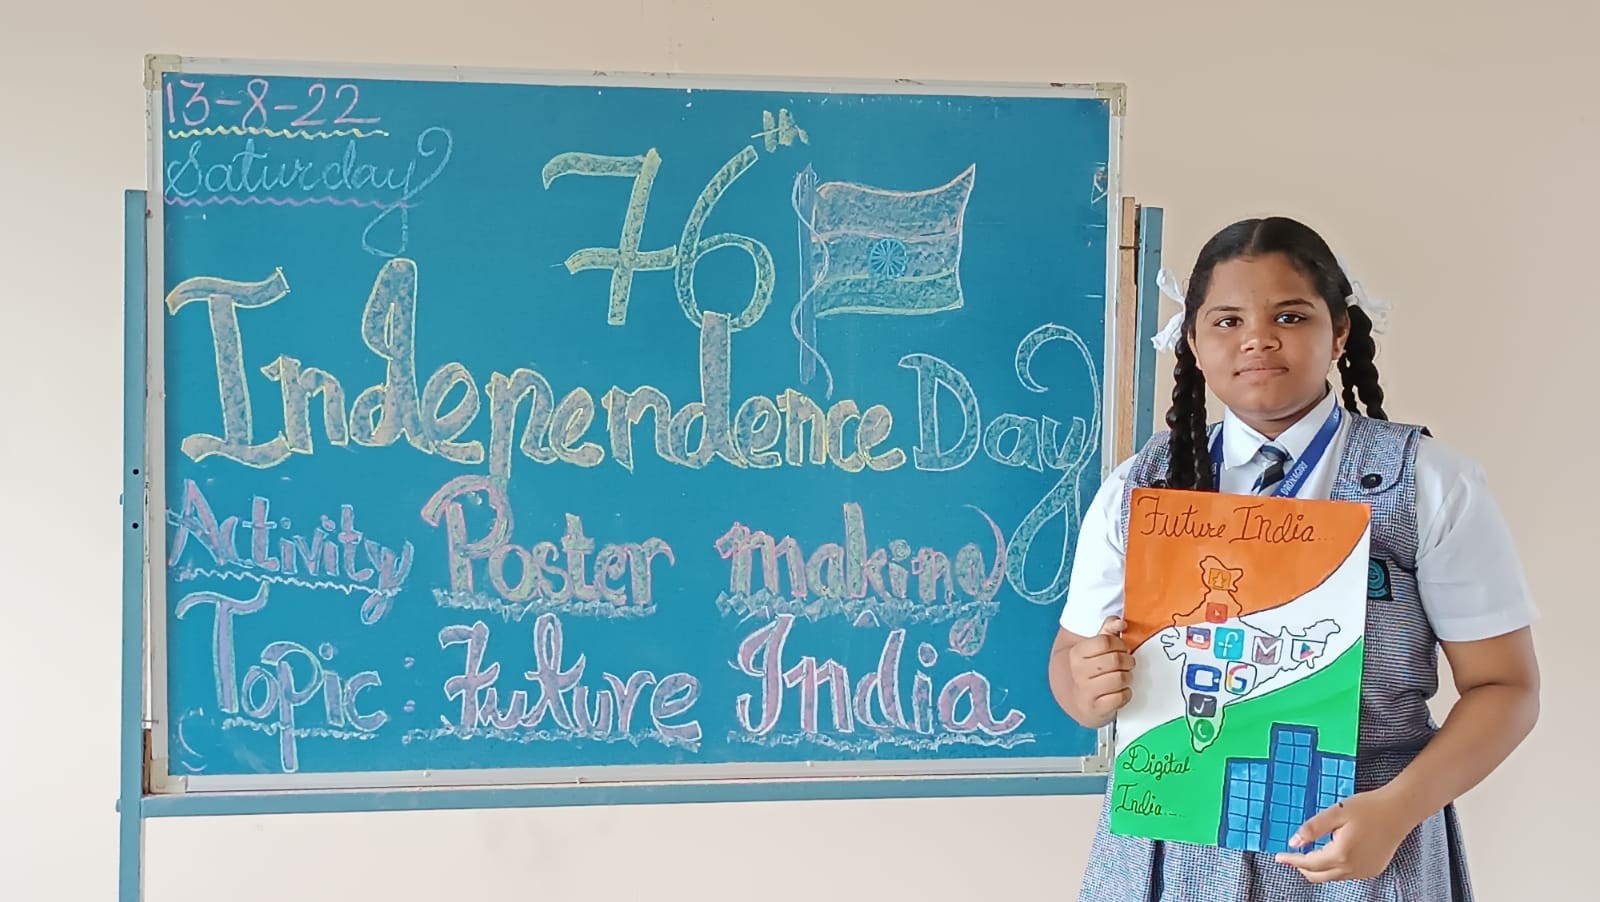 13-8-22
Saturday
76th
Independence Day
Activity Poster making
Topic : Future India
Future India...
Digital
India.....